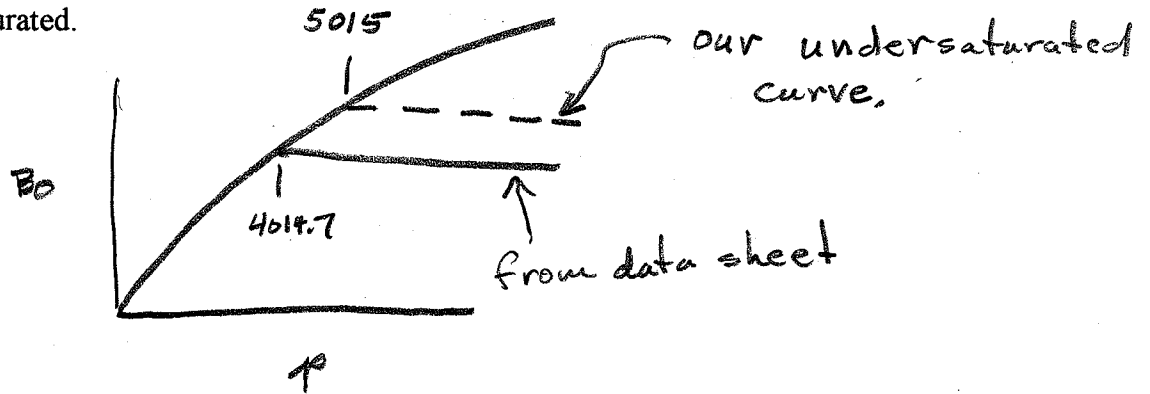 urated.
5015
our undersaturated
curve.
Bo
4014.7
from data sheet
p